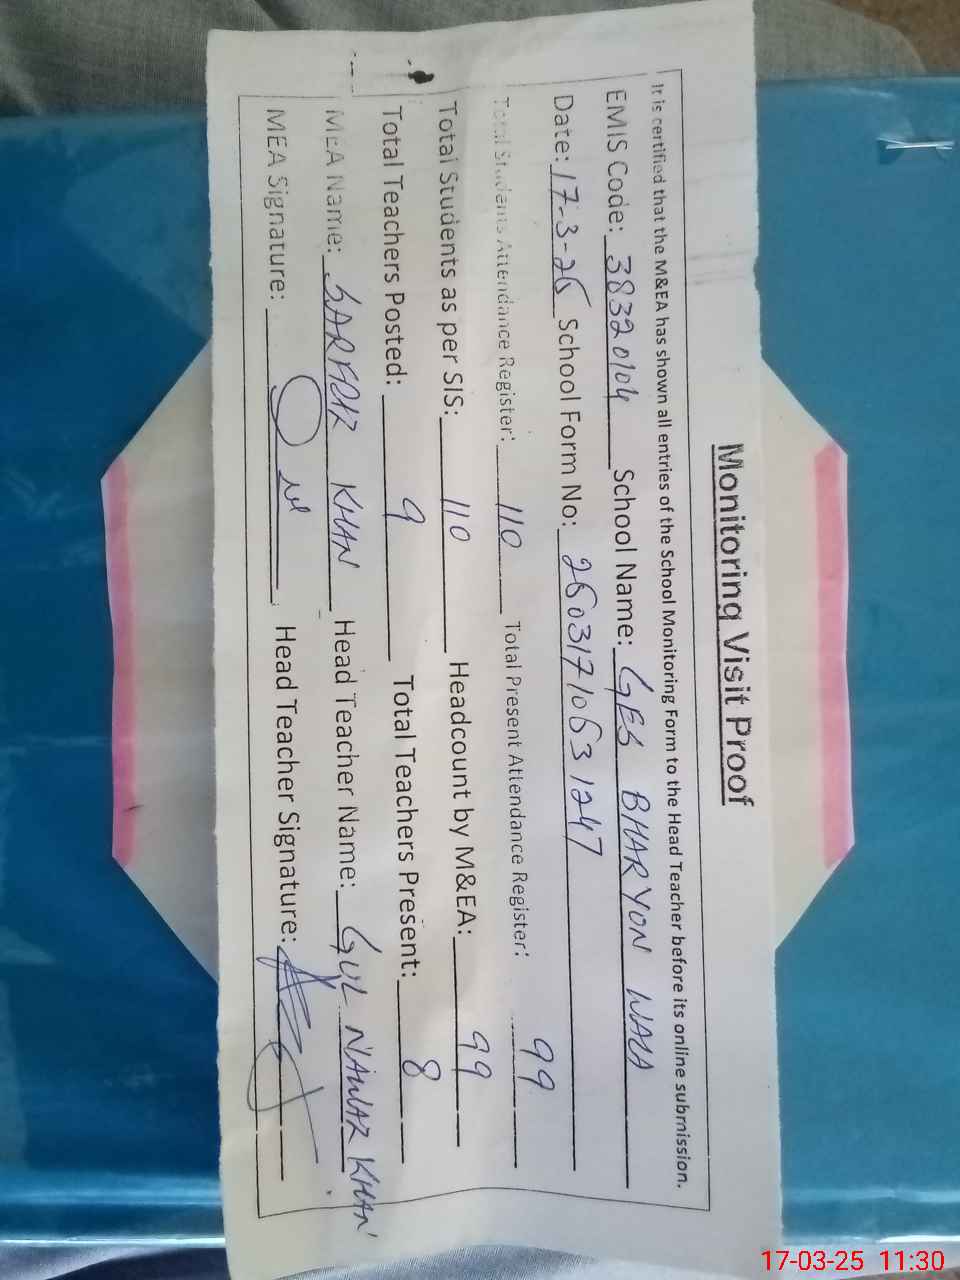 Monitoring Visit Proof
It is certified that the M&EA has shown all entries of the School Monitoring Form to the Head Teacher before its online submission.
EMIS Code: 38320104 School Name: GES BHARYON WALA
Date: 17-3-25 School Form No: 25031710531247
Total Students Attendance Register: 110 Total Present Attendance Register: 99
Total Students as per SIS: 110 Headcount by M&EA: 99
Total Teachers Posted: 9 Total Teachers Present: 8
MEA Name: SARFRAZ KHAN Head Teacher Name: GUL NAWAZ KHAN
MEA Signature: Head Teacher Signature:
17-03-25 11:30